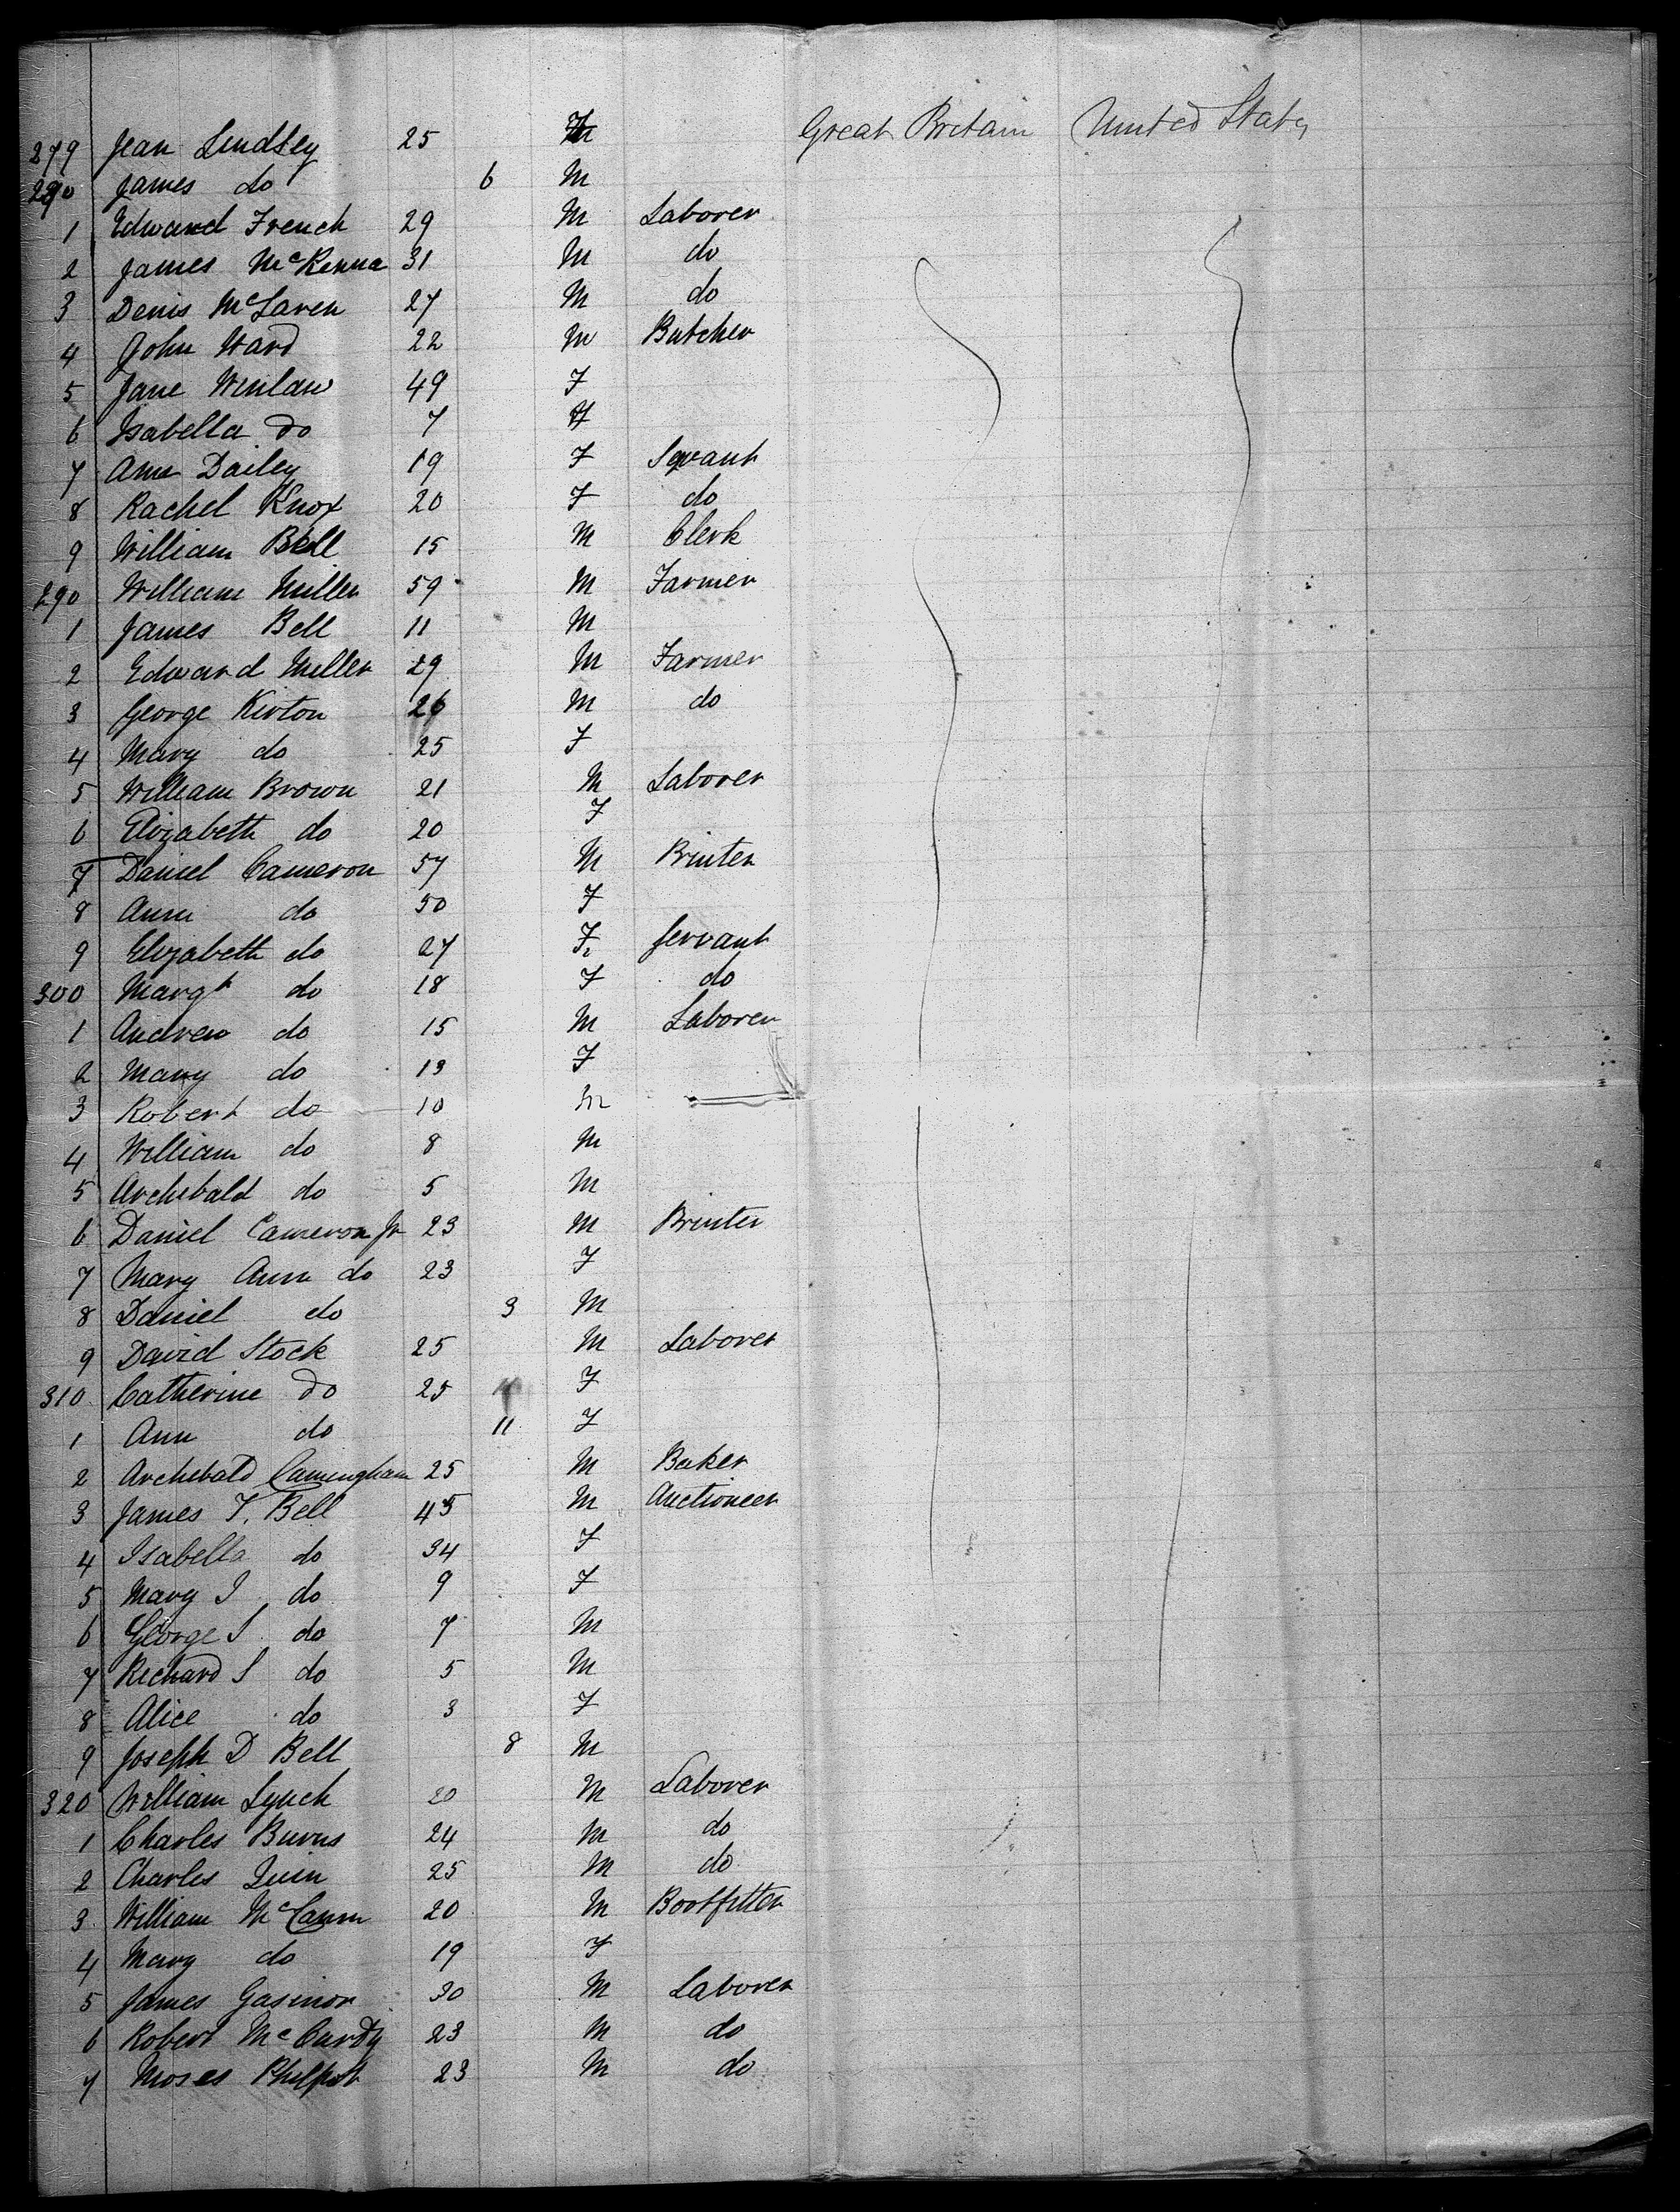 279 Jean Lindsey 25 F Great Britain United States
280 James do 6 M
1 Edward French 29 M Laborer
2 James McKenna 31 M do
3 Denis McLaren 27 M do
4 John Ward 22 M Butcher
5 Jane Winlaw 49 F
6 Isabella do 7 F
7 Ann Dailey 19 F Servant
8 Rachel Knox 20 F do
9 William Bell 15 M Clerk
290 William Miller 59 M Farmer
1 James Bell 11 M
2 Edward Miller 29 M Farmer
3 George Kirton 26 M do
4 Mary do 25 F
5 William Brown 21 M Laborer
6 Elizabeth do 20 F
7 Daniel Cameron 57 M Printer
8 Ann do 50 F
9 Elizabeth do 27 F Servant
300 Margt do 18 F do
1 Andrew do 15 M Laborer
2 Mary do 13 F
3 Robert do 10 M
4 William do 8 M
5 Archibald do 5 M
6 Daniel Cameron Jr 23 M Printer
7 Mary Ann do 23 F
8 Daniel do 3 M
9 David Stock 25 M Laborer
310 Catherine do 25 F
1 Ann do 11 F
2 Archibald Cuningham 25 M Baker
3 James T. Bell 45 M Auctioneer
4 Isabella do 34 F
5 Mary I do 9 F
6 George S do 7 M
7 Richard S do 5 M
8 Alice do 3 F
9 Joseph D Bell 8 M
320 William Lynch 20 M Laborer
1 Charles Burns 24 M do
2 Charles Quin 25 M do
3 William McCann 20 M Bootfitter
4 Mary do 19 F
5 James 30 M Laborer
6 Robert McCurdy 23 M do
7 Moses Philpot 23 M do